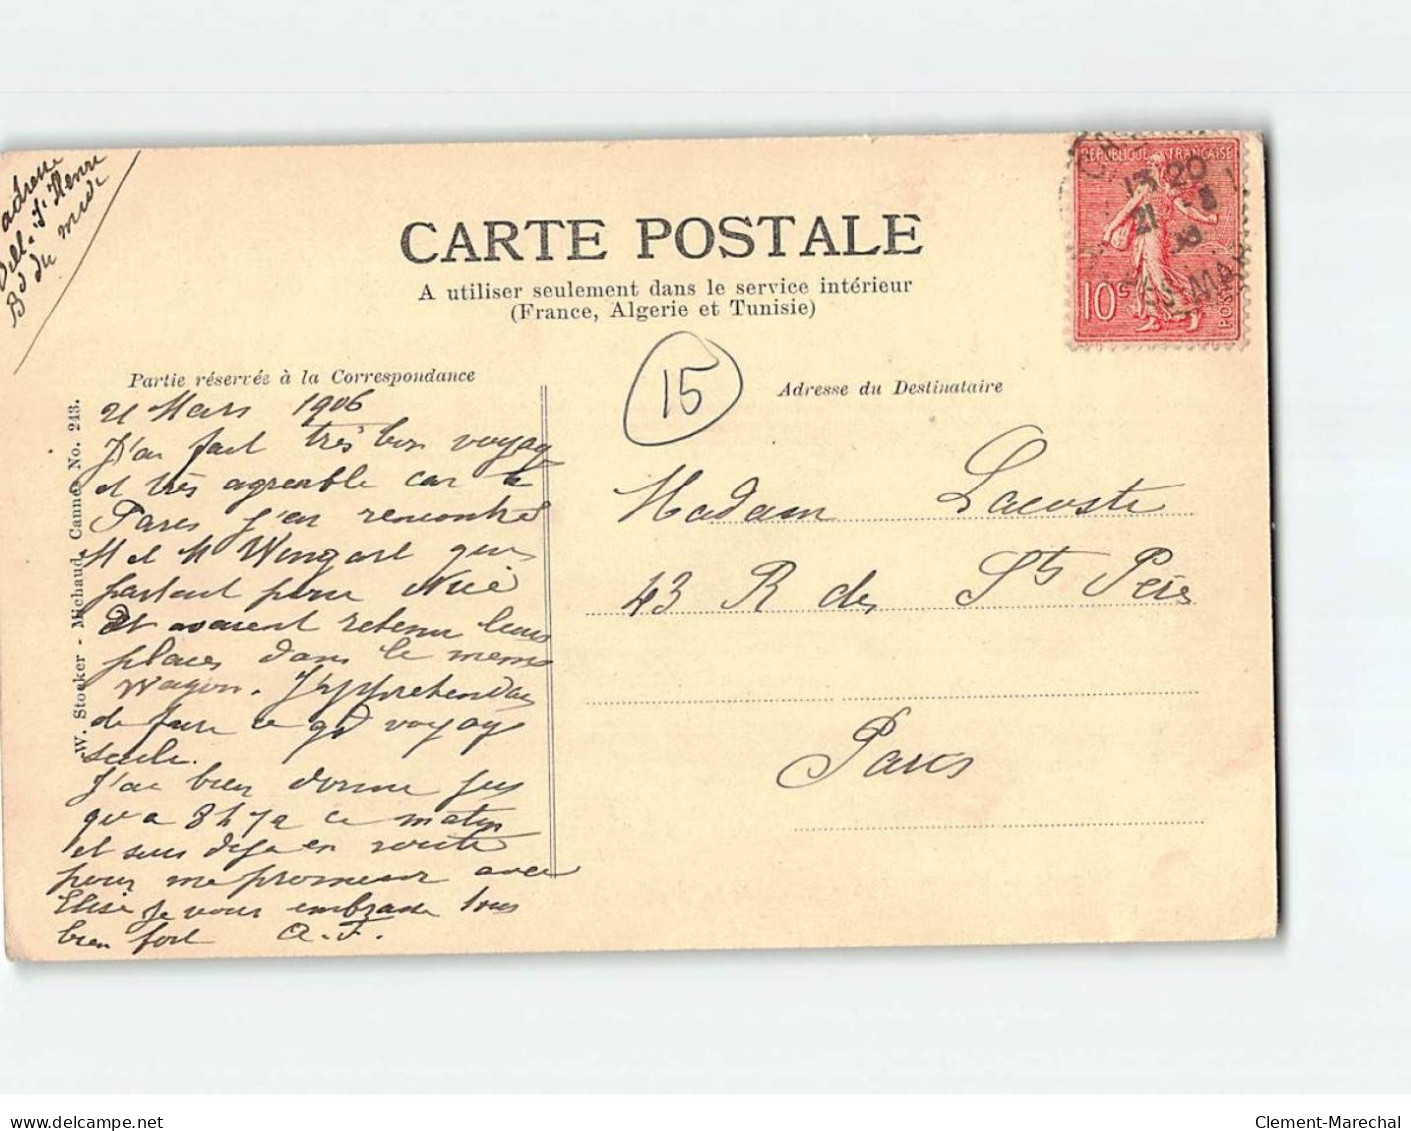 adresse
Vill. St Henri
Bd du midi
CARTE POSTALE
A utiliser seulement dans le service intérieur
(France, Algerie et Tunisie)
RÉPUBLIQUE FRANÇAISE
13 20
21 - 3
10c
POSTES
Partie réservée à la Correspondance
Adresse du Destinataire
15
W. Stocker - Michaud, Cannes No. 243.
21 Mars 1906
J'ai fait très bon voyage
et très agreable car à
Paris j'en rencontré
M et M Wingart qui
partait pour Nice
Et avaient retenu leurs
places dans le meme
Wagon. J'apprehendais
de faire ce gd voyage
seule.
J'ai bien dormi jus
qu'a 8h ce matin
et suis deja en route
pour me promener avec
Elise Je vous embrasse tous
bien fort A. F.
Madam Lacoste
43 R des Sts Peres
Paris
delcampe.net
Clement-Marechal